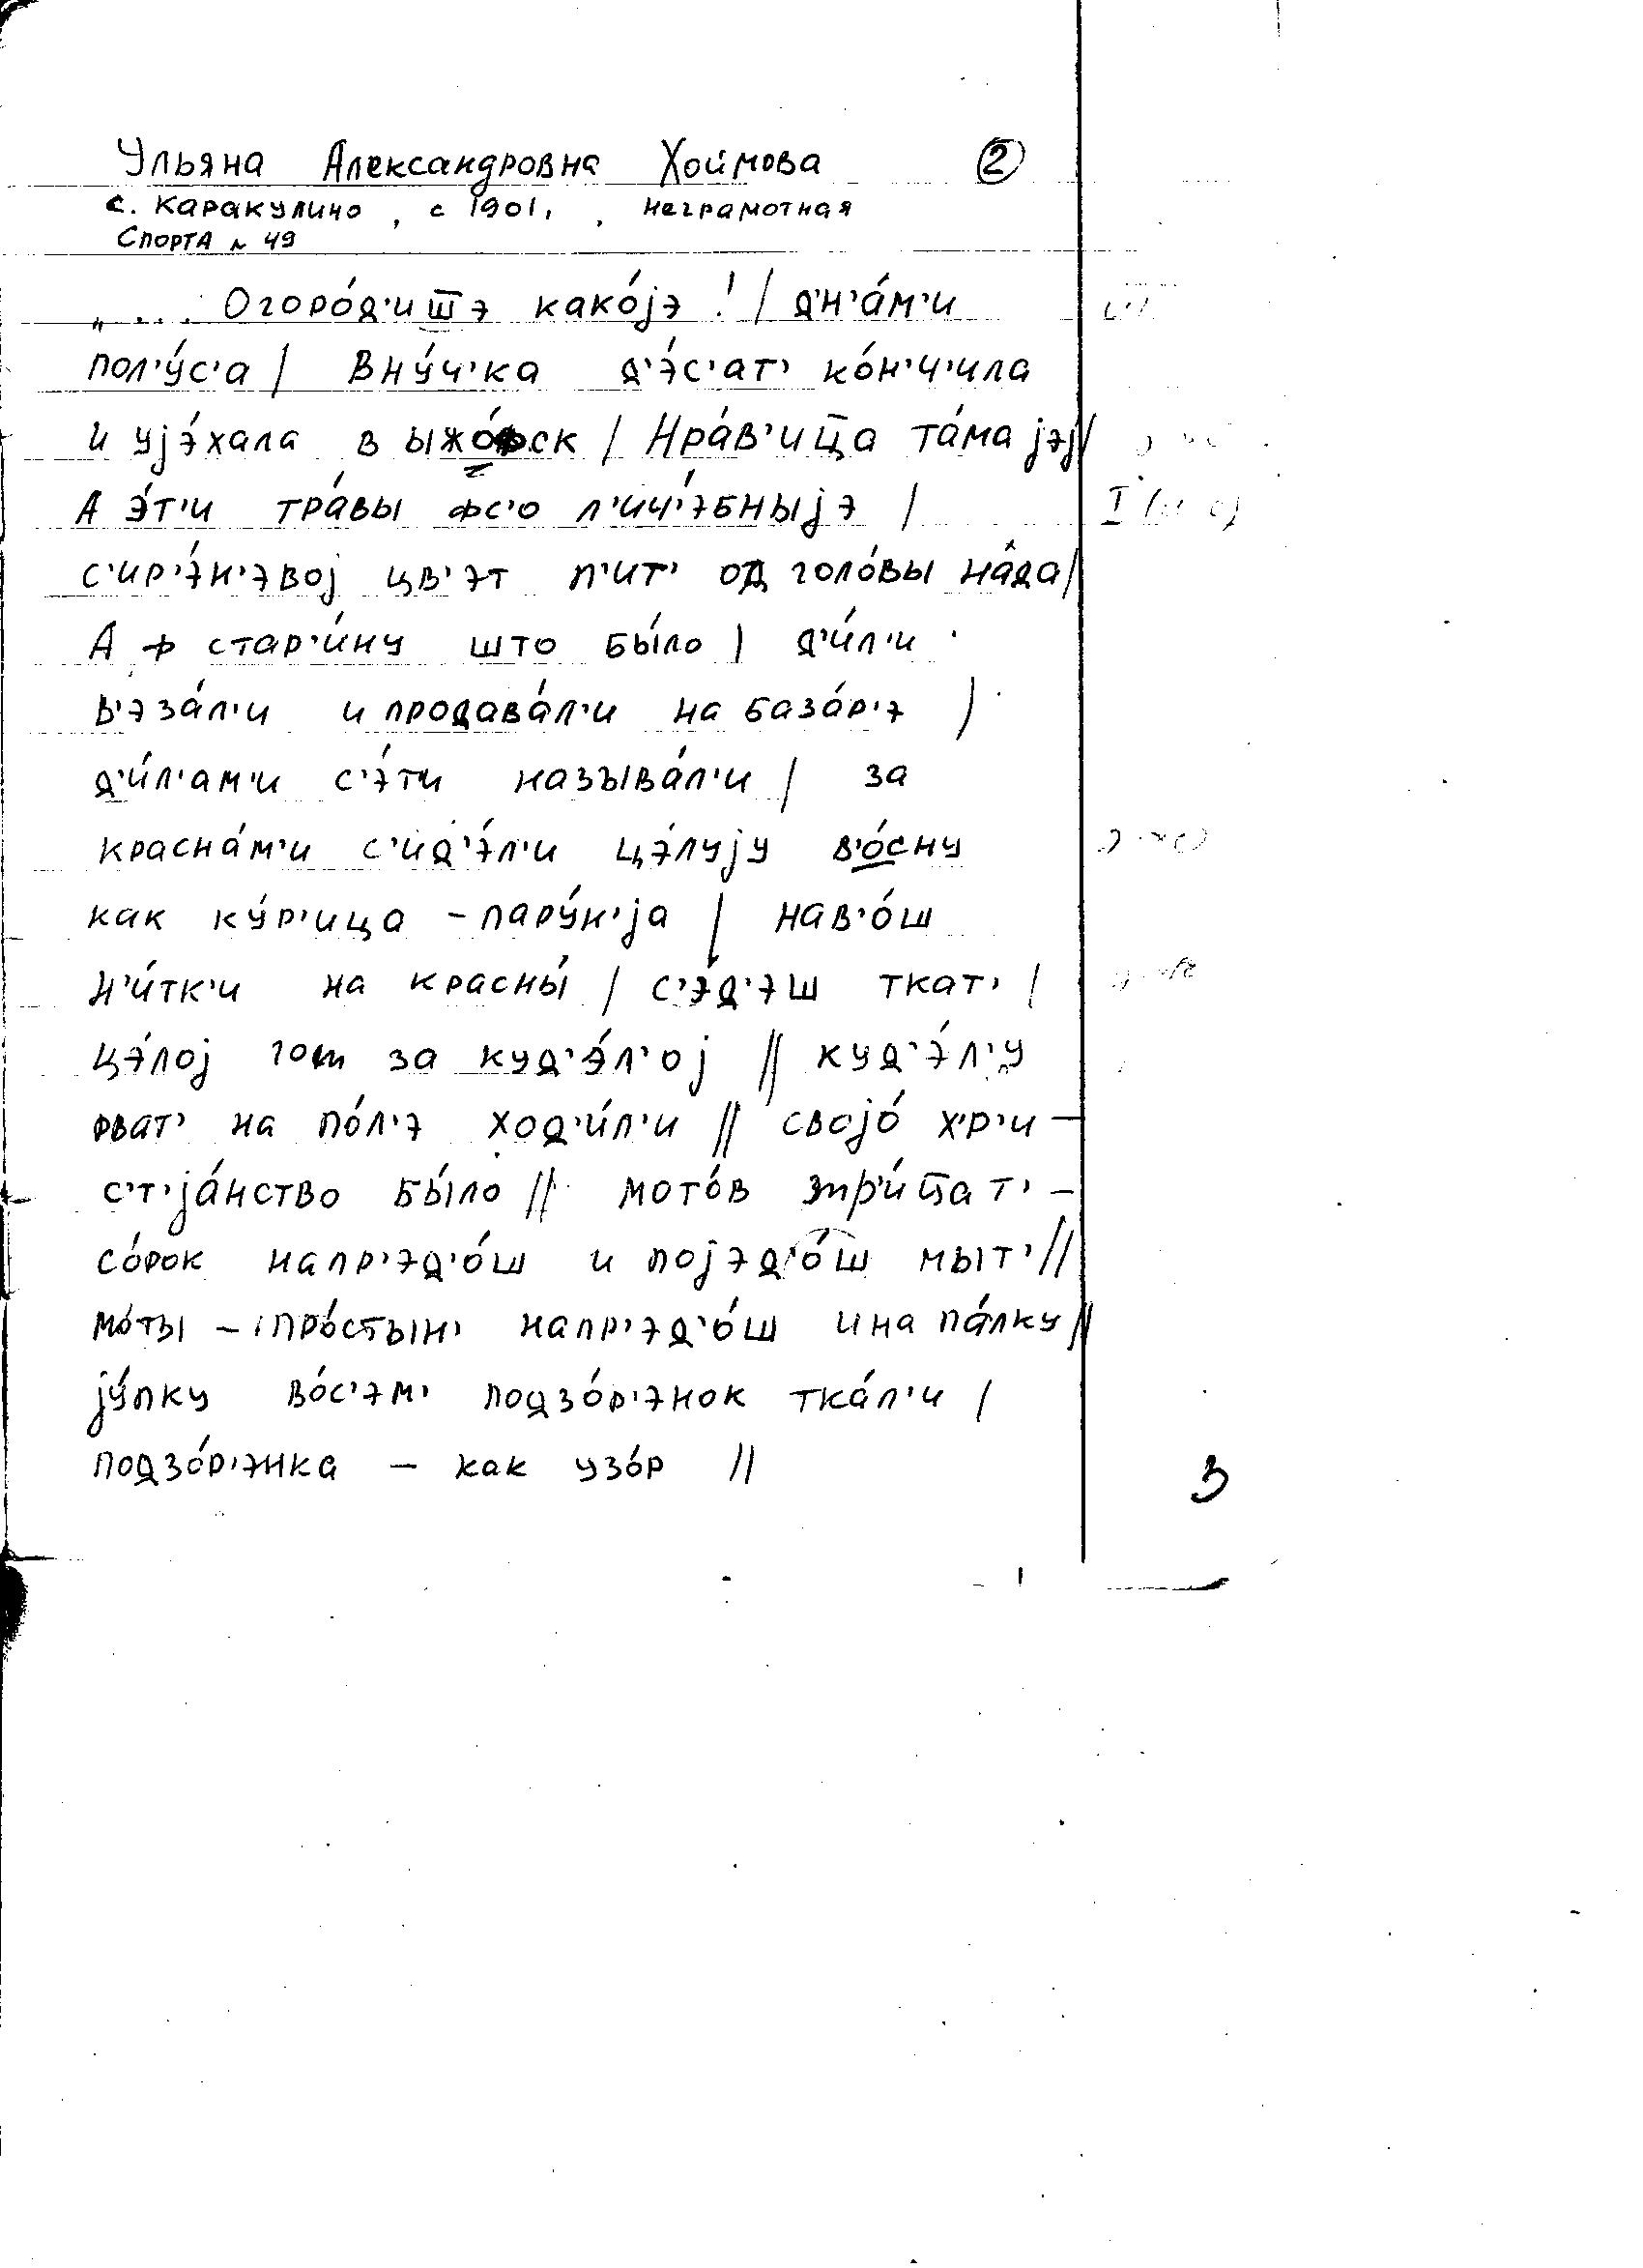 Ульяна Александровна Хоймова ②
с. Каракулино, с 1901, , неграмотная
Спорта № 49
„... Огоро́д'иш̅э како́jэ ! / д'н'а́м'и
пол'у́с'а / вну́ч'ка д'э́с'ат' ко́н'ч'ила
и уjэ́хала в ыжо́фск / Нра́в'иц̅а та́ма jэj /
А э́т'и тра́вы фс'о л'ич'э́бныjэ /
с'ир'э́н'эвоj цв'эт п'ит' од голо́вы на́да /
А ф стар'и́ну што бы́ло / д'и́л'и
в'эза́л'и и продава́л'и на база́р'э /
д'и́л'ам'и с'э́ти называ́л'и / за
красна́м'и с'ид'э́л'и цэ́луjу в'о́сну
как ку́р'ица - пару́н'jа / нав'о́ш
н'и́тк'и на красны́ / с'э́д'эш ткат' /
цэ́лоj гот за куд'э́л'оj // куд'э́л'у
рват' на по́л'э ход'и́л'и // своjо́ х'р'и-
с'т'jа́нство бы́ло // мото́в тр'и́ц̅ат' -
со́рок напр'эд'о́ш и поjэд'о́ш мыт' //
мо́ты - про́стын' напр'эд'о́ш и на па́лку //
jу́пку во́с'эм' подзо́р'энок тка́л'и /
подзо́р'энка - как узо́р //
3